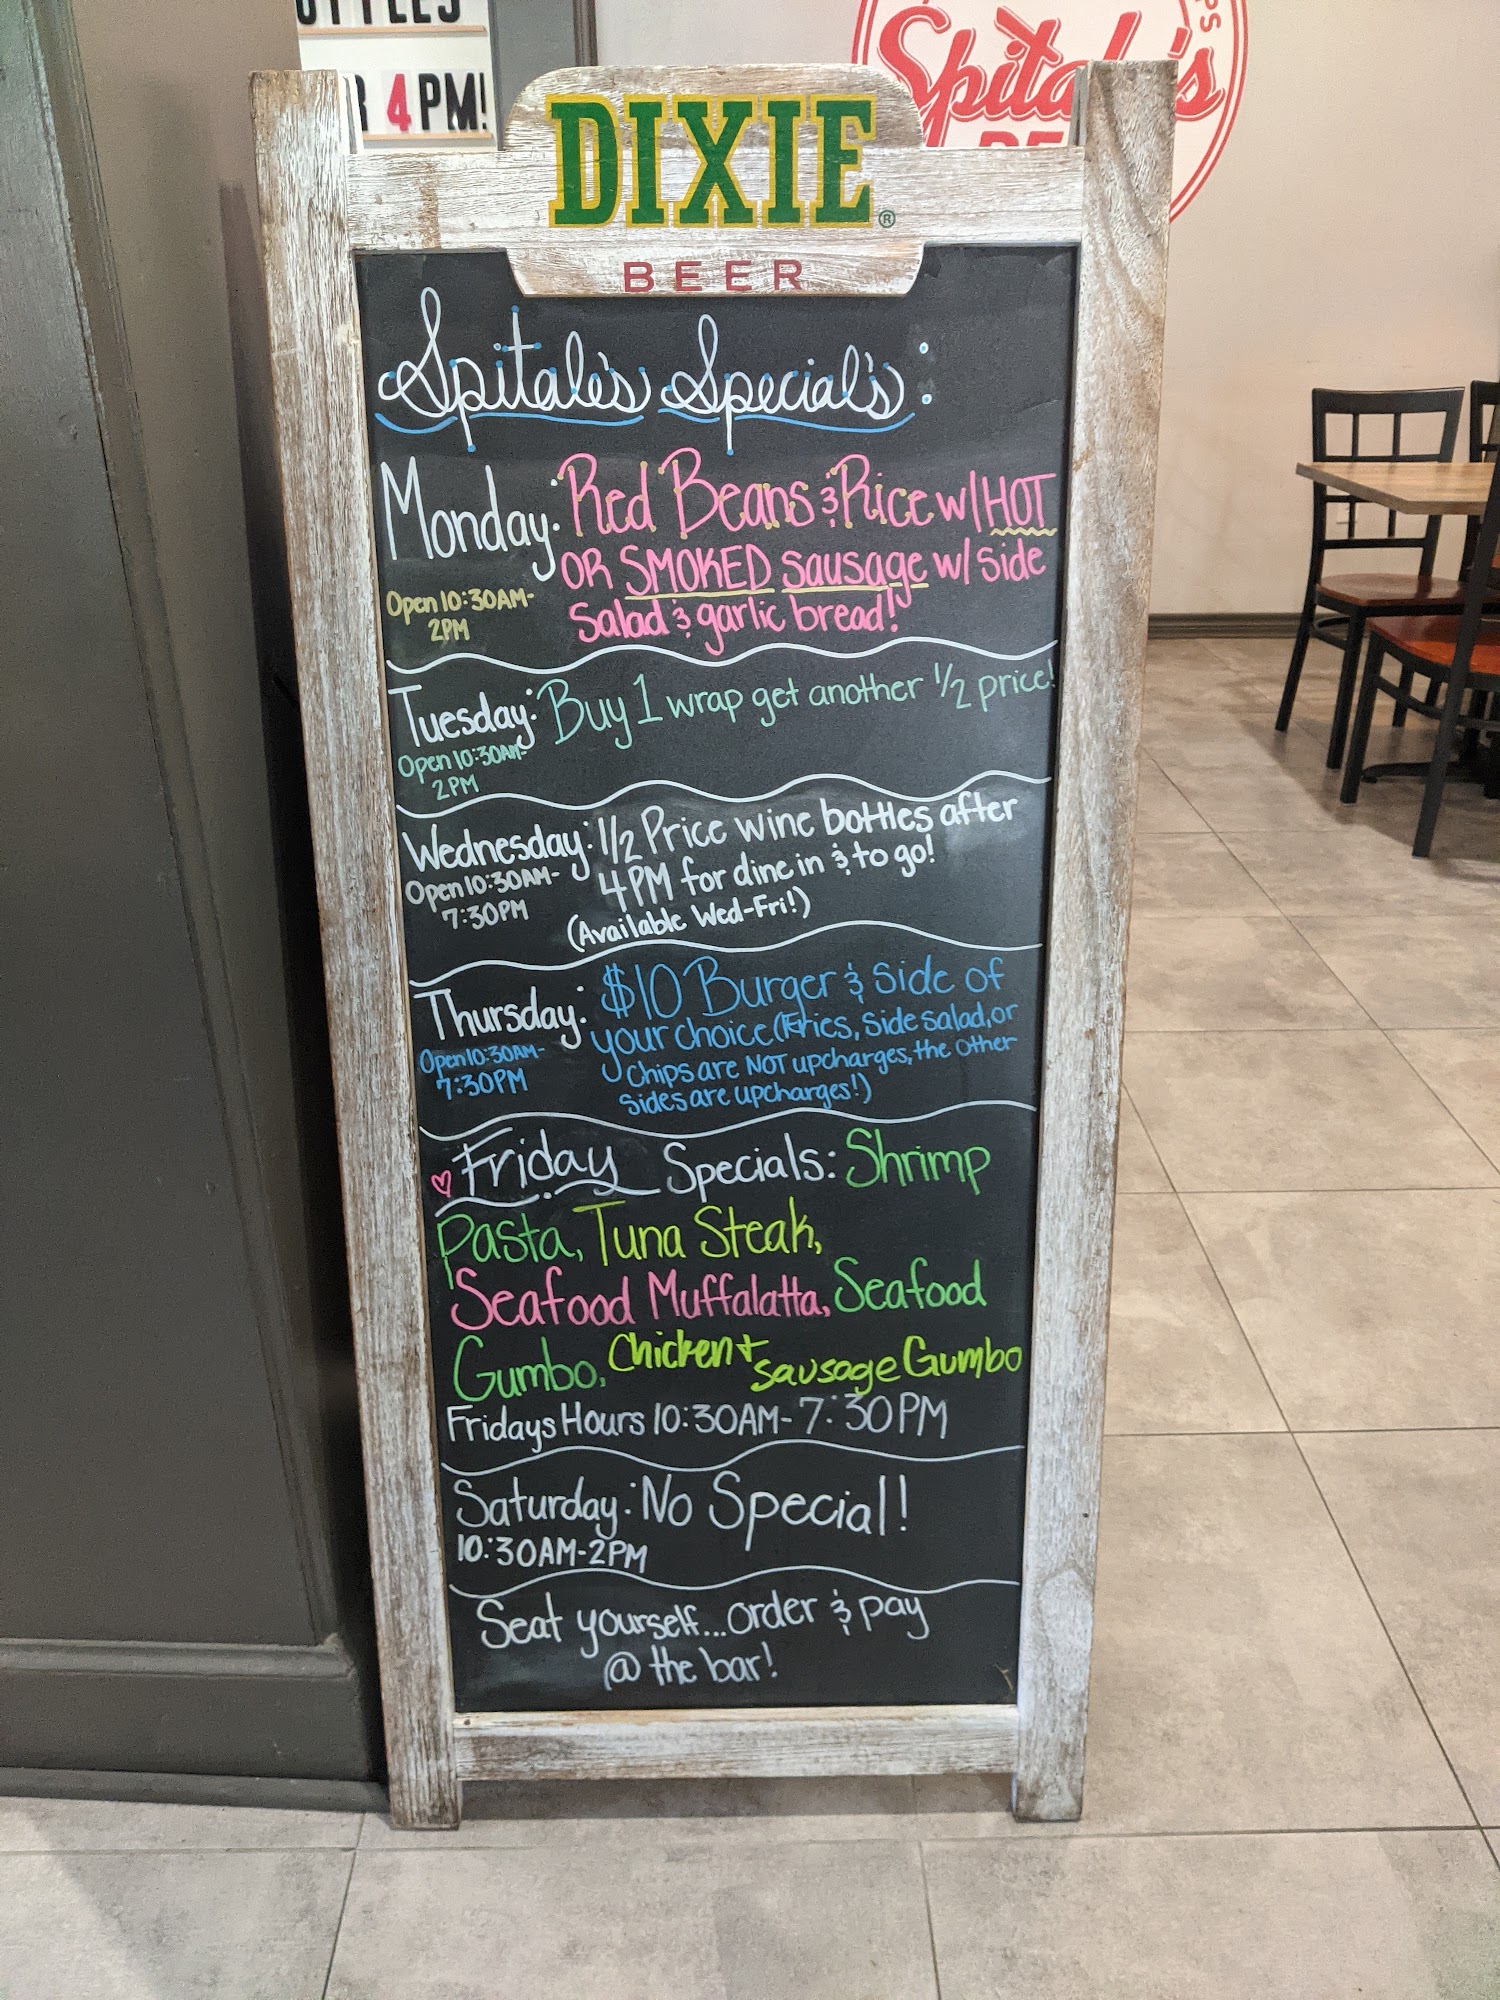 OTTLES
R 4PM!
Spitale's
DE
PS
DIXIE®
BEER
Spitale's Special's:
Monday: Red Beans & Rice w/ HOT
OR SMOKED sausage w/ side
Salad & garlic bread!
Open 10:30AM-
2PM
Tuesday: Buy 1 wrap get another 1/2 price!
Open 10:30AM-
2PM
Wednesday: 1/2 Price wine bottles after
4PM for dine in & to go!
(Available Wed-Fri!)
Open 10:30AM-
7:30PM
Thursday: $10 Burger & side of
your choice (Fries, side salad, or
chips are NOT upcharges, the other
sides are upcharges!)
Open 10:30AM-
7:30PM
Friday Specials: Shrimp
Pasta, Tuna Steak,
Seafood Muffalatta, Seafood
Gumbo, Chicken + sausage Gumbo
Fridays Hours 10:30AM-7:30PM
Saturday: No Special!
10:30AM-2PM
Seat yourself... order & pay
@ the bar!